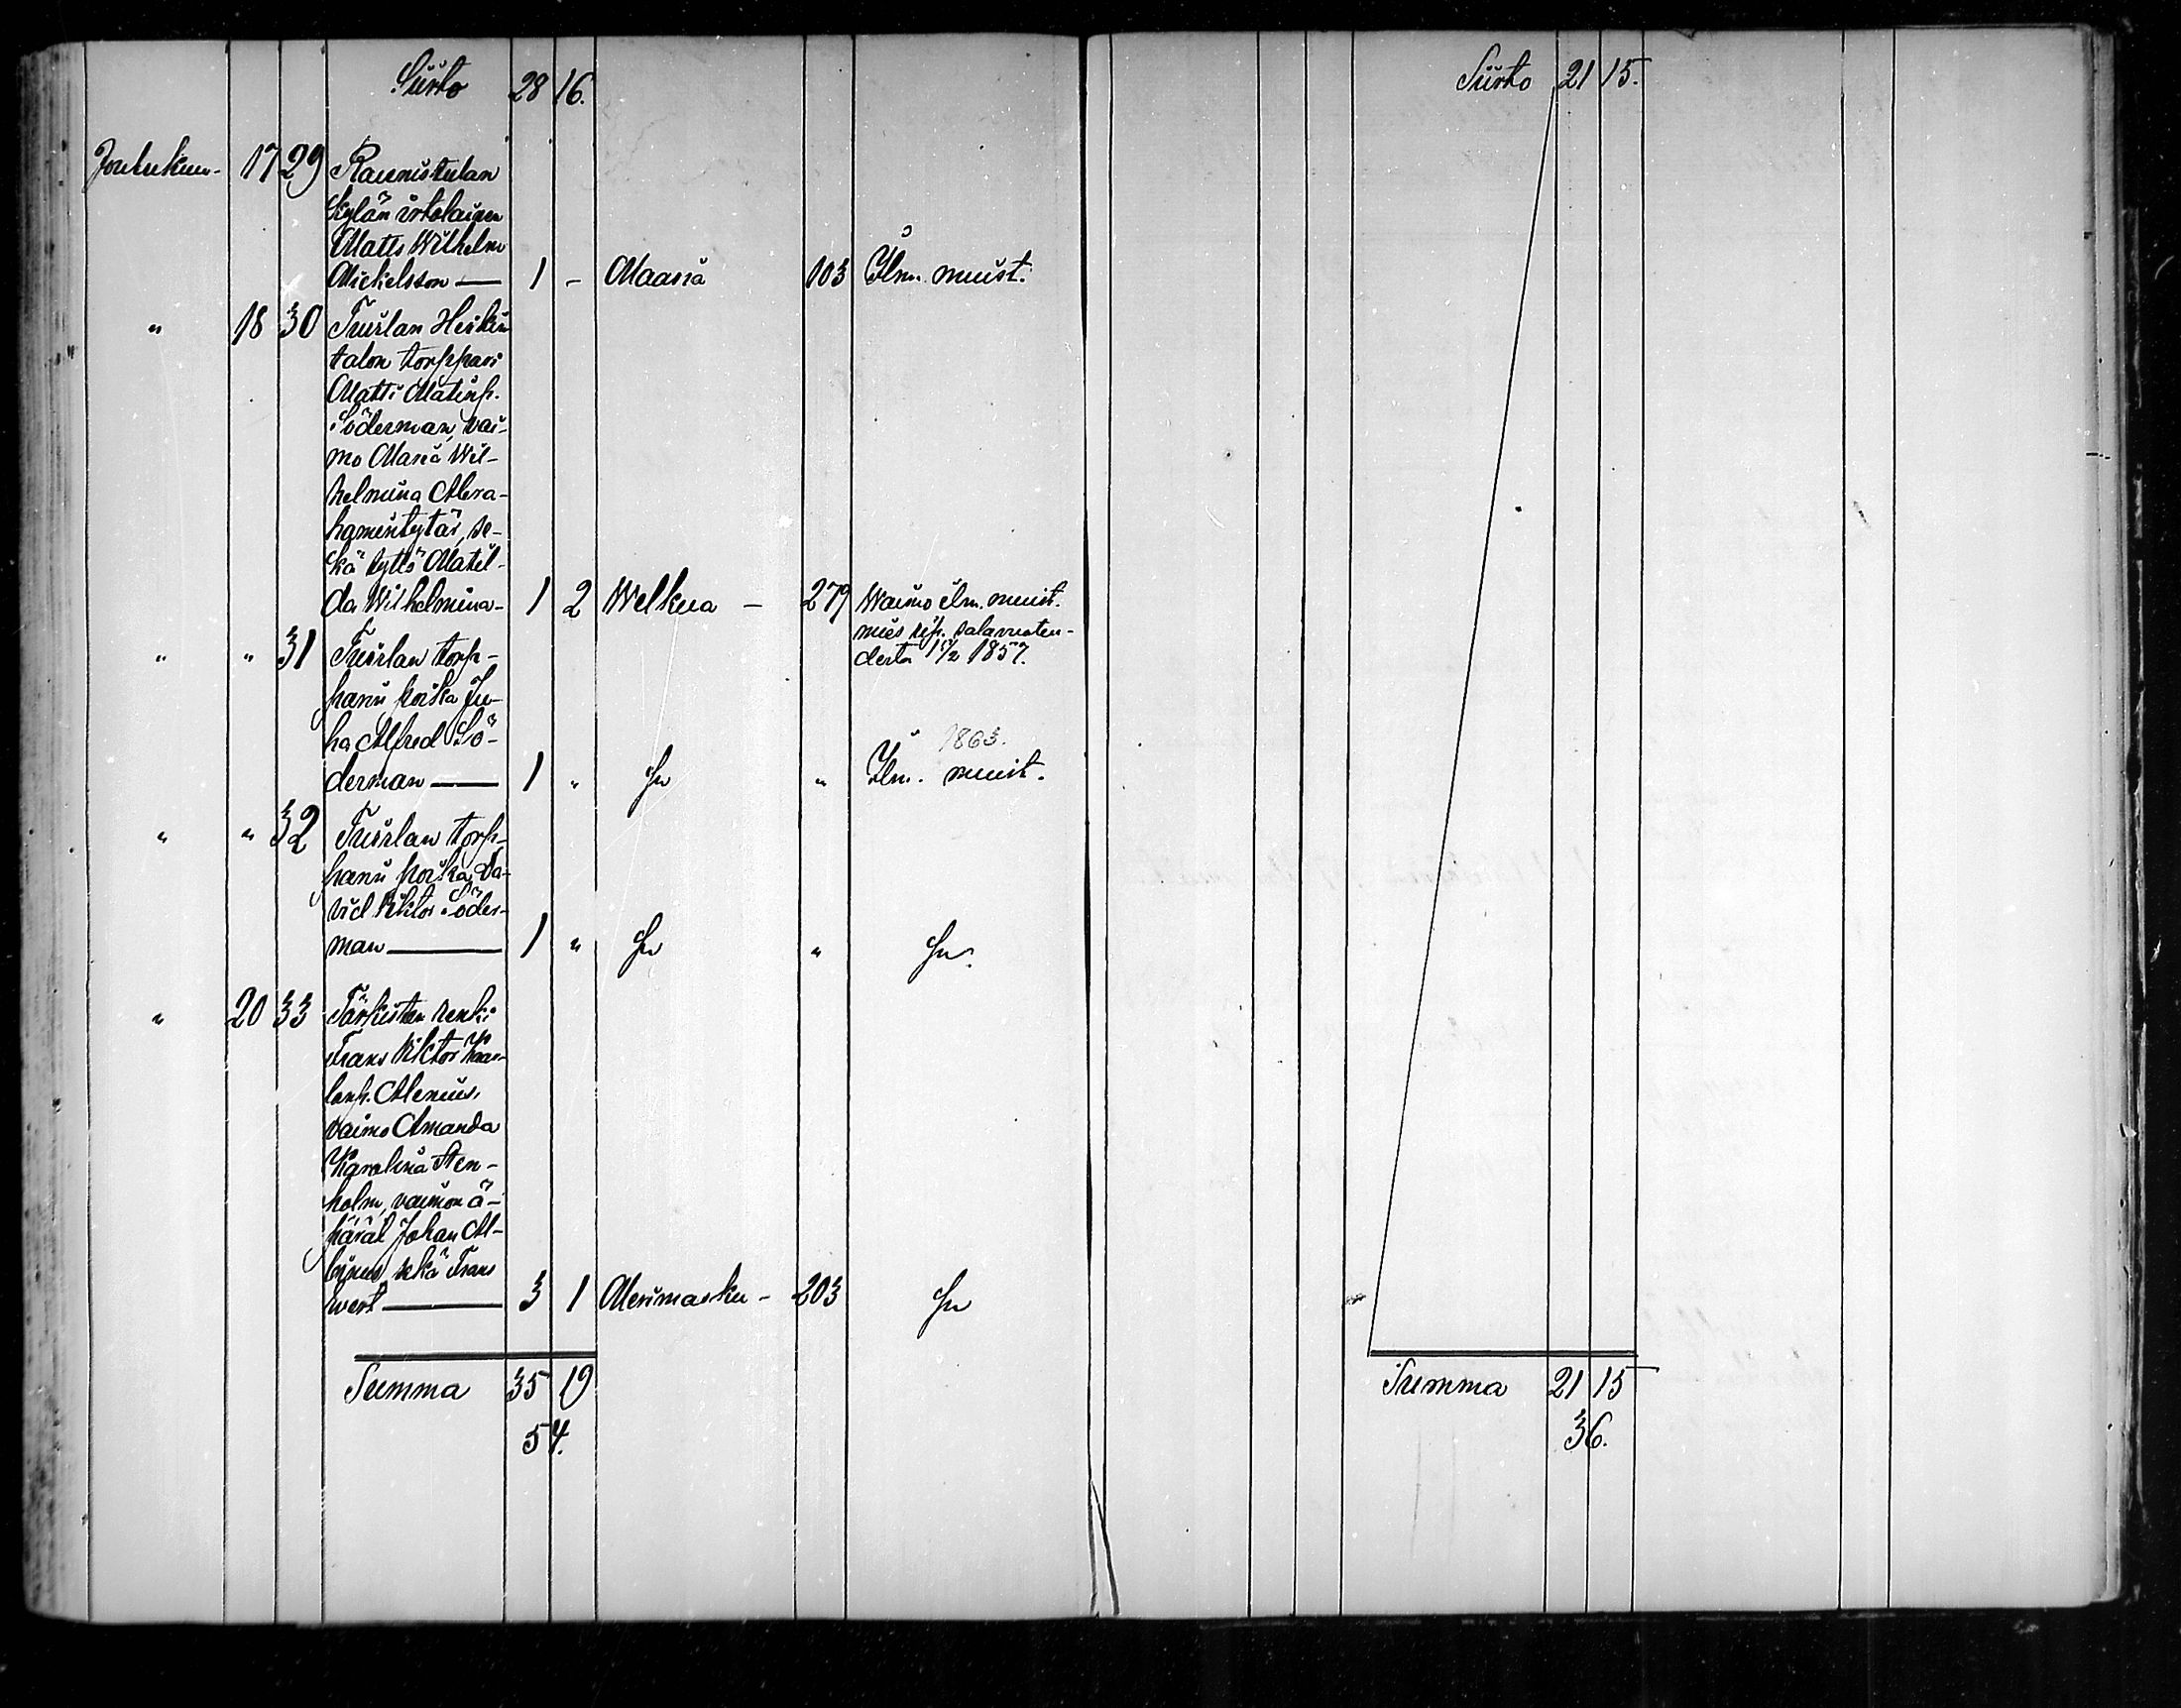 Siirto 28 16.
Joulukuu- 17 29 Raunistulan
kylän irtolainen
Matts Wilhelm
Mickelsson — 1 - Maaria 103 Ilm. muist.
" 18 30 Tuorlan Heikin
talon torppari
Matti Matinp.
Söderman, vai-
mo Maria Wil-
helmina Abra-
hamintytär, se-
kä tyttö Matil-
da Wilhelmina - 1 2 Welkua - 279 Waimo ilm. muist.
mies rip. salavuoteu-
desta 15/2 1857.
" " 31 Tuorlan torp-
parin poika Ju-
ha Alfred Sö-
1863.
derman — 1 " Sn " Ilm. muist.
" " 32 Tuorlan torp-
parin poika Da-
vid Viktor Söder-
man — 1 " Sn " Sn.
" 20 33 renki
Frans Viktor Kaar-
lonp. Alenius,
vaimo Amanda
Karolina Sten-
holm, vaimon ä-
pärät Johan Al-
binus sekä Frans
Ivert — 3 1 Merimasku - 203 Sn
Summa 35 19
54.
Siirto 21 15.
Summa 21 15
36.